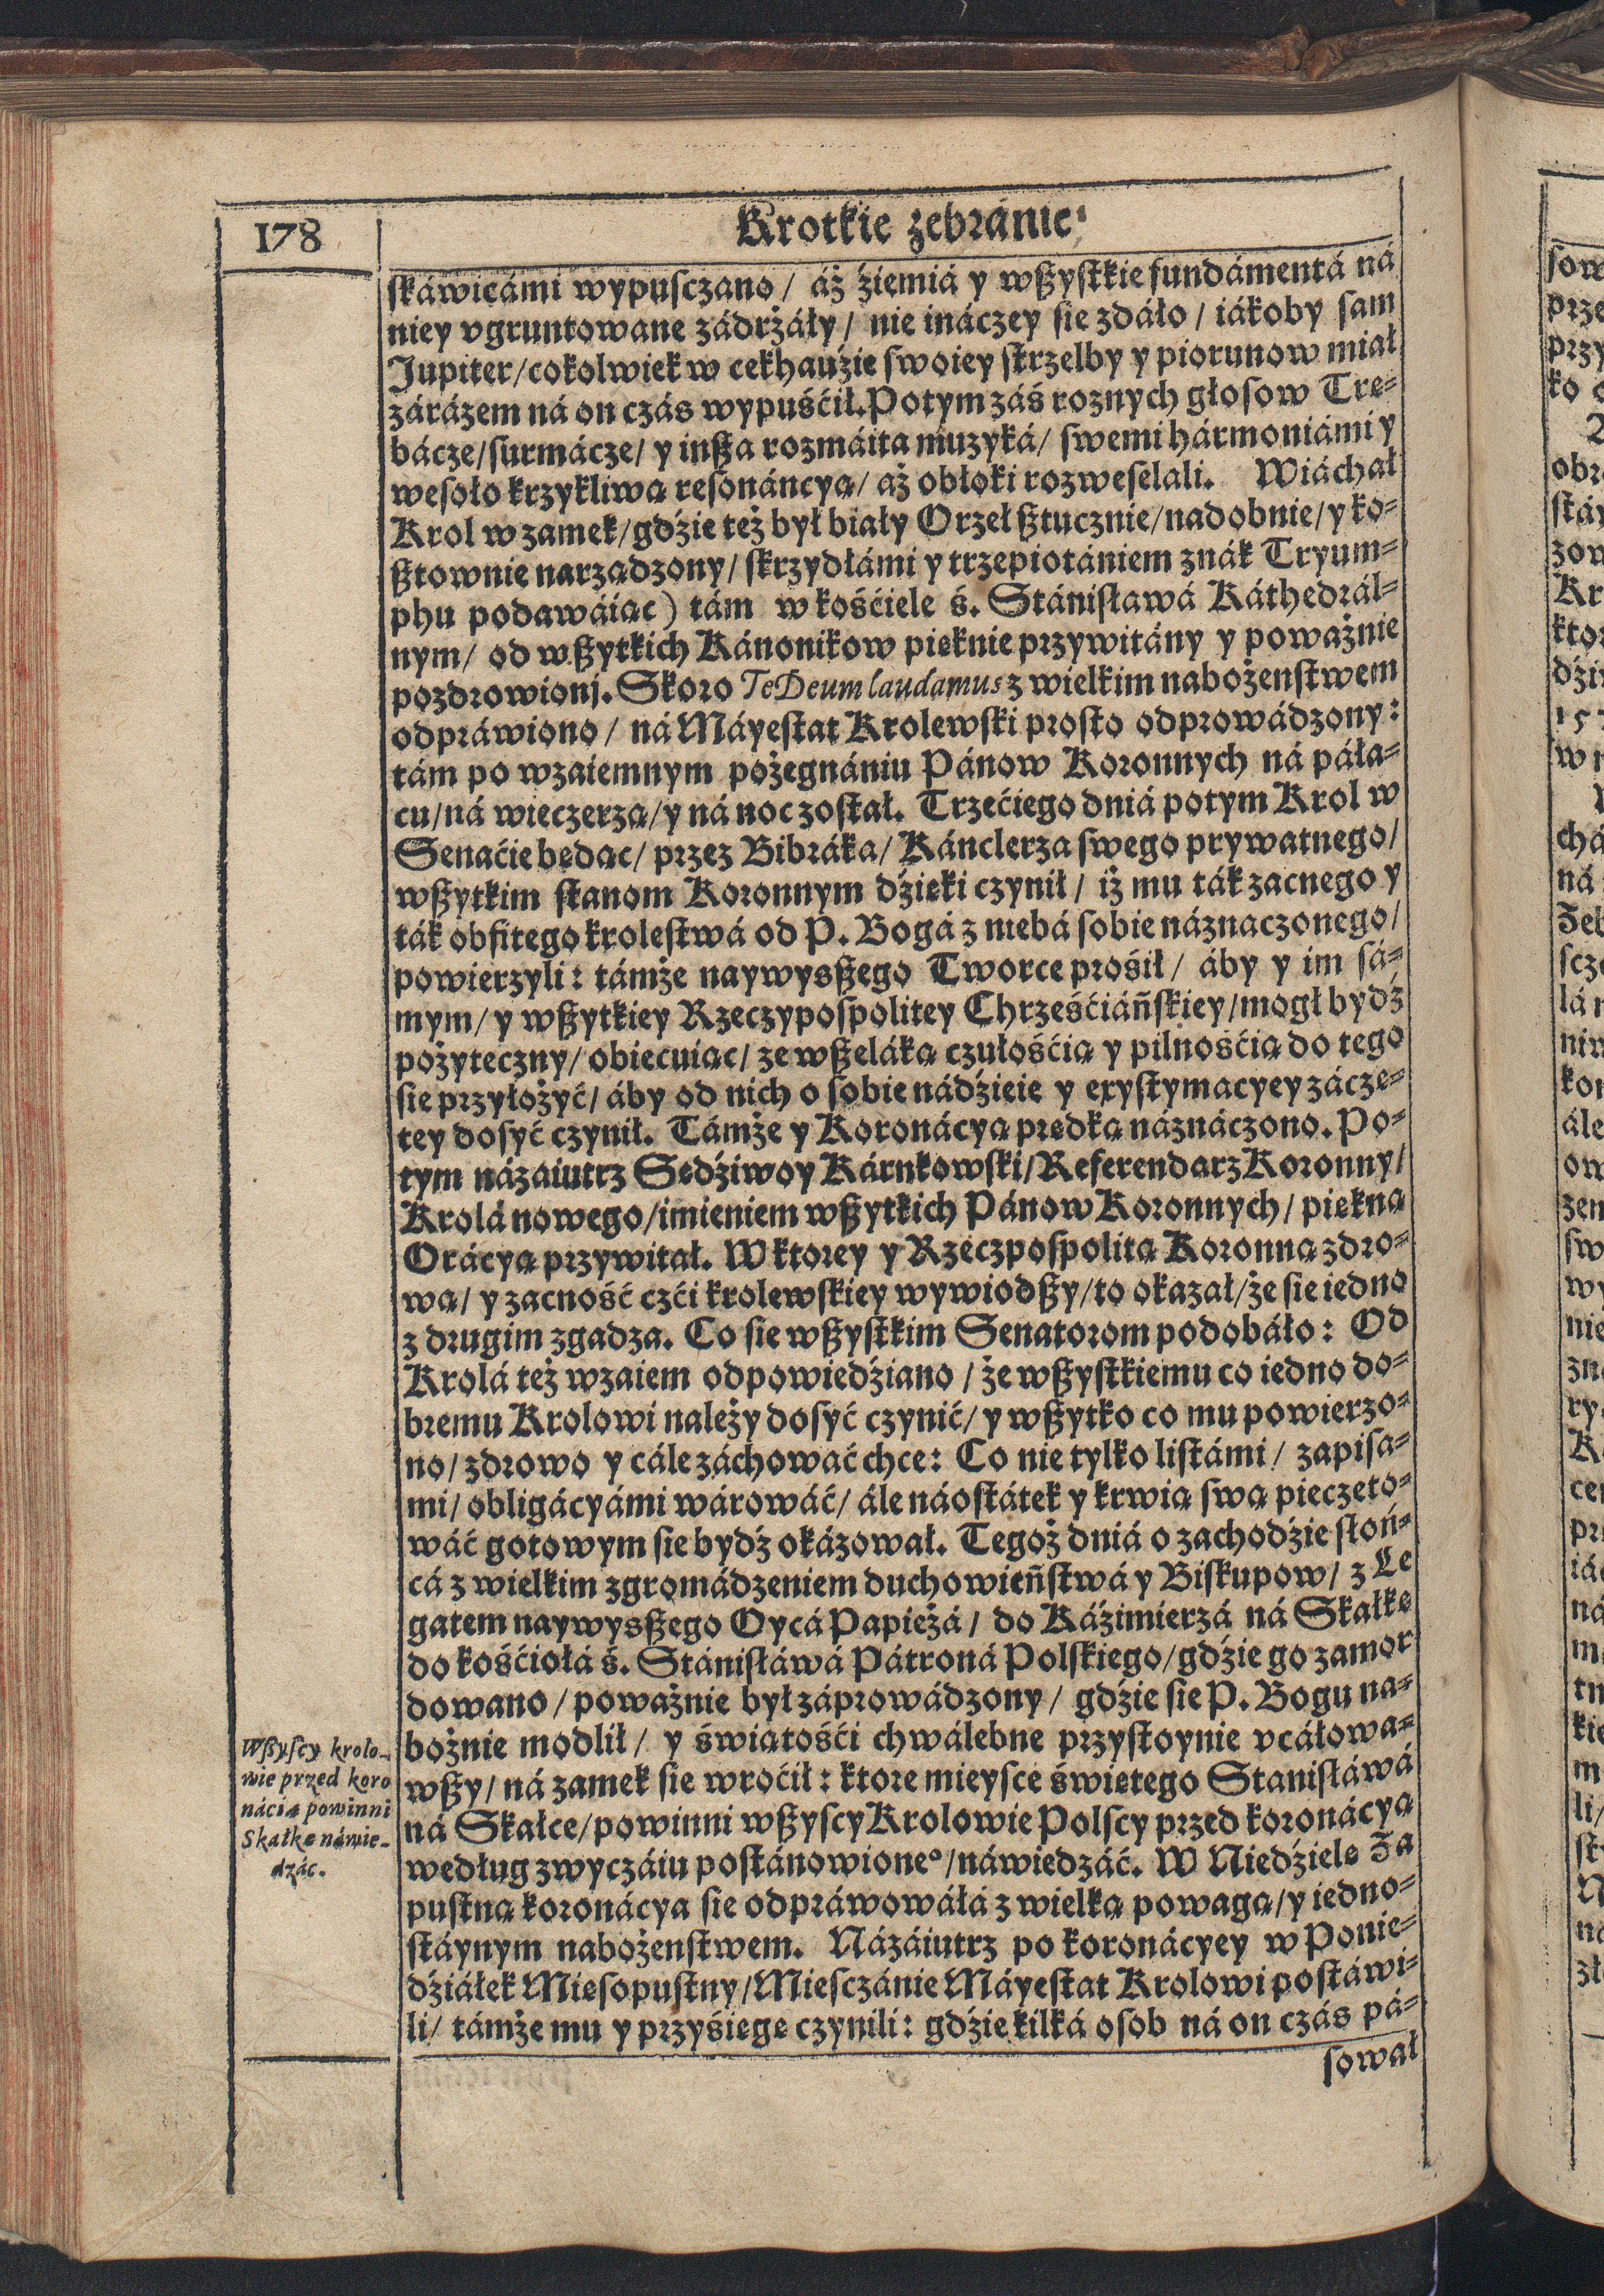 178
Krotkie zebránie
skáwicámi wypusczano / áż źiemiá y wßystkie fundámentá ná
niey vgruntowane zádrżáły / nie ináczey się zdáło / iákoby sam
Jupiter / cokolwiek w cekhauźie swoiey strzelby y piorunow miał
zárázem ná on czás wypuśćił. Potym záś roznych głosow Trę-
bácze / surmácze / y inßa rozmáita muzyká / swemi hármoniámi y
wesoło krzykliwą resonáncyą / aż obłoki rozweselali. Wiáchał
Krol w zamek / gdźie też był biały Orzeł ßtucznie / nadobnie / y ko-
ßtownie narządzony / skrzydłámi y trzepiotániem znák Tryum-
phu podawáiąc) tám w kośćiele ś. Stánisławá Káthedrál-
nym / od wßytkich Kánonikow pięknie przywitány y poważnie
pozdrowionj. Skoro Te Deum laudamus z wielkim nabożeństwem
odpráwiono / ná Máyestat Krolewski prosto odprowádzony:
tám po wzaiemnym pożegnániu Pánow Koronnych ná páła-
cu / ná wieczerzą / y ná noc został. Trzećiego dniá potym Krol w
Senaćie będąc / przez Bibráká / Kánclerza swego prywatnego /
wßytkim stanom Koronnym dźięki czynił / iż mu ták zacnego y
ták obfitego krolestwá od P. Bogá z niebá sobie náznaczonego /
powierzyli: támże naywysßego Tworcę prośił / áby y im sá-
mym / y wßytkiey Rzeczypospolitey Chrześćiáńskiey / mogł bydź
pożyteczny / obiecuiąc / ze wßeláką czułośćią y pilnośćią do tego
się przyłożyć / áby od nich o sobie nádźieię y exystymacyey záczę-
tey dosyć czynił. Támże y Koronácyą prędką náznáczono. Po-
tym názaiutrz Sędźiwoy Kárnkowski / Referendarz Koronny /
Krolá nowego / imieniem wßytkich Pánow Koronnych / piękną
Orácyą przywitał. W ktorey y Rzeczpospolitą Koronną zdro-
wą / y zacność czći krolewskiey wywiodßy / to okazał / że się iedno
z drugim zgadza. Co się wßystkim Senatorom podobáło: Od
Krolá też wzaiem odpowiedźiano / że wßystkiemu co iedno do-
bremu Krolowi należy dosyć czynić / y wßytko co mu powierzo-
no / zdrowo y cále záchować chce: Co nie tylko listámi / zapisa-
mi / obligácyámi wárowáć / ále náostátek y krwią swą pieczęto-
wáć gotowym się bydź okázował. Tegoż dniá o zachodźie słoń-
cá z wielkim zgromádzeniem duchowieństwá y Biskupow / z Le
gatem naywysßego Oycá Papieżá / do Káźimierzá ná Skałkę
do kośćiołá ś. Stánisłáwá Pátroná Polskiego / gdźie go zamor
dowano / poważnie był záprowádzony / gdźie się P. Bogu na-
bożnie modlił / y świątośći chwálebne przystoynie vcáłowa-
wßy / ná zamek się wroćił: ktore mieysce świętego Stanisłáwá
ná Skałce / powinni wßyscy Krolowie Polscy przed koronácyą
według zwyczáiu postánowione° / náwiedzáć. W Niedźielę Za
pustną koronácya się odpráwowáłá z wielką powagą / y iedno-
stáynym nabożeństwem. Názáiutrz po koronácyey w Ponie-
dźiáłek Mięsopustny / Miesczánie Máyestat Krolowi postáwi-
li / támże mu y przyśięgę czynili: gdźie kilká osob ná on czás pá-
sował
Wßyscy krolo-
wie przed koro
nácią powinni
Skałkę náwie-
dzác.